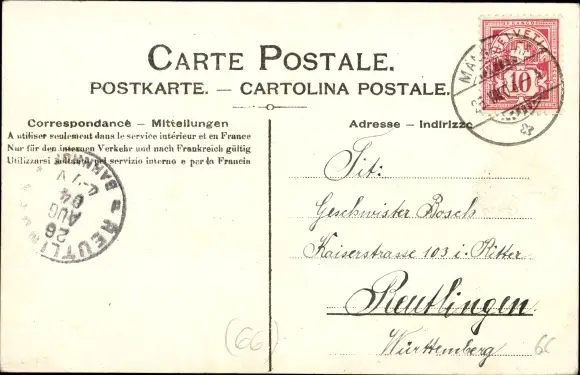 CARTE POSTALE.
POSTKARTE. — CARTOLINA POSTALE.
Correspondance – Mitteilungen
A utiliser seulement dans le service intérieur et en France
Nur für den internen Verkehr und nach Frankreich gültig
Utilizzarsi soltanto nel servizio interno e per la Francia
Adresse – Indirizzo
FRANCO
HELVETIA
10
REUTLINGEN
BAHNHOF
26
AUG
04
4-7 V
Tit:
Geschwister Bosch
Kaiserstrasse 103 i. Ritter
Reutlingen
Württemberg
(66)
66